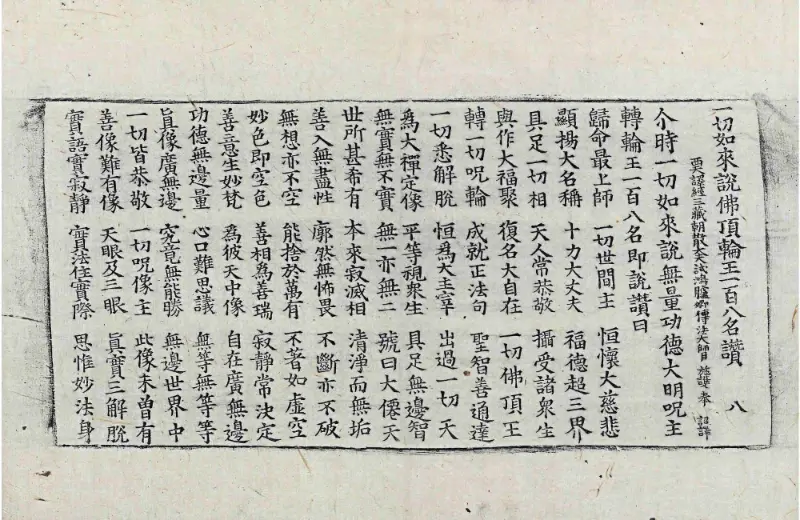 一切如來說佛頂輪王一百八名讚 八
西天譯經三藏朝散大夫試鴻臚卿傳法大師臣 施護 奉 詔譯
尒時一切如來說無量功德大明呪主
轉輪王一百八名即說讚曰
歸命最上師 一切世間主 恒懷大慈悲
顯揚大名稱 十力大丈夫 福德超三界
具足一切相 天人常恭敬 攝受諸衆生
與作大福聚 復名大自在 一切佛頂王
轉一切呪輪 成就正法句 聖智善通達
一切悉解脫 恒為大主宰 出過一切天
為大禪定像 平等視衆生 具足無邊智
無實無不實 無一亦無二 號曰大僊天
世所甚希有 本來寂滅相 清淨而無垢
善入無盡性 廓然無怖畏 不斷亦不破
無想亦不空 能捨於萬有 不著如虛空
妙色即空色 善相為善瑞 寂靜常決定
善意生妙梵 為彼天中像 自在廣無邊
功德無邊量 心口難思議 無等無等等
真像廣無邊 究竟無能勝 無邊世界中
一切皆恭敬 一切呪像主 此像未曾有
善像難有像 天眼及三眼 真實三解脫
實語實寂靜 實法住實際 思惟妙法身